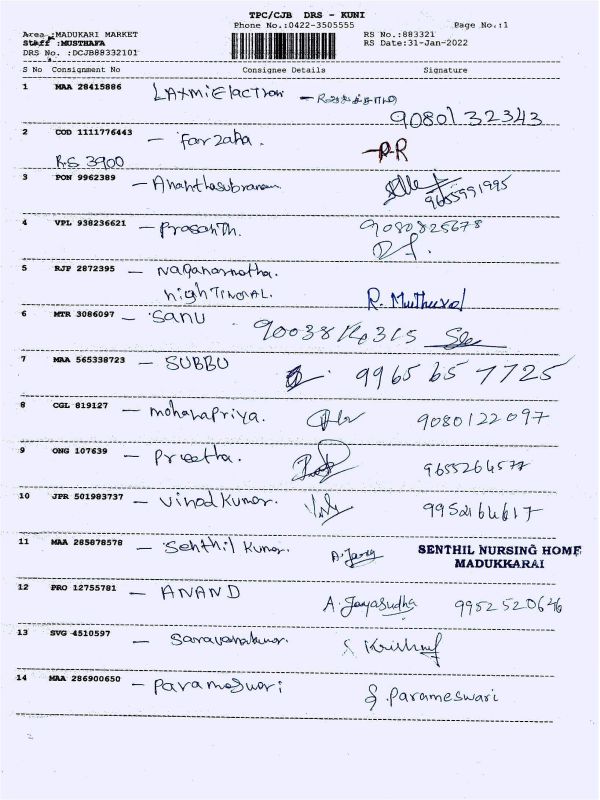 TPC/CJB DRS - KUNI
Phone No.:0422-3505555 Page No.:1
Area :MADUKARI MARKET RS No.:883321
Staff :MUSTHAFA RS Date:31-Jan-2022
DRS No. :DCJB88332101
S No Consignment No Consignee Details Signature
1 MAA 28415886 LAXMi ElacTion -
9080132343
2 COD 1111776443 - Farzana.
RS 3900
3 PON 9962389 - Ananthasubranam
9655991995
4 VPL 938236621 - Prasanth. 9080825678
5 RJP 2872395 -
NighTINGAL. R. Muthuval
6 MTR 3086097 - SANU
7 MAA 565338723 - SUBBU 9965 65 7725
8 CGL 819127 - mohanapriya. 9080122097
9 ONG 107639 - Preetha. 9655264577
10 JPR 501983737 - Vinod Kumar. 9952164617
11 MAA 285878578 - Senthil Kumar. SENTHIL NURSING HOME
MADUKKARAI
12 PRO 12755781 - ANAND A. Jayasudha 9952520646
13 SVG 4510597 - Saravanakumar.
14 MAA 286900650 - Parameswari S. Parameswari